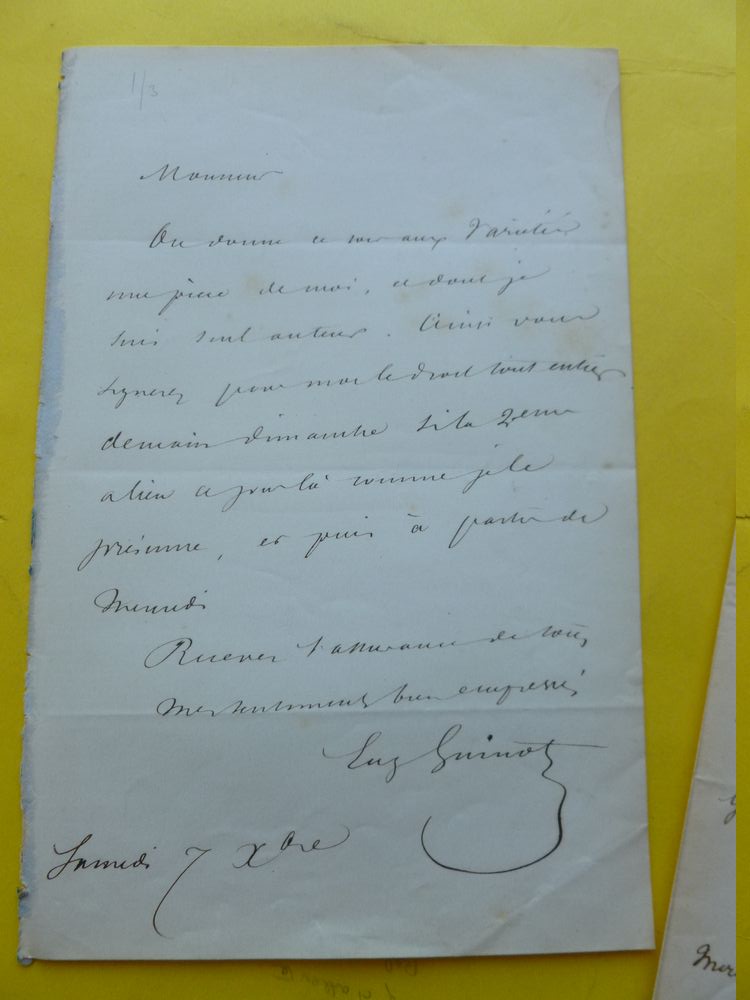 1/3
Monsieur
On donne ce soir aux Variétés
une pièce de moi, et dont je
suis seul auteur. Ainsi vous
signerez pour moi le droit tout entier
demain dimanche si la 2eme
a lieu ce jour là comme je le
présume, et puis à partir de
Mercredi
Recevez l'assurance de tous
mes sentiments bien empressés
Eug Guinot
Samedi 7 Xbre
Mer